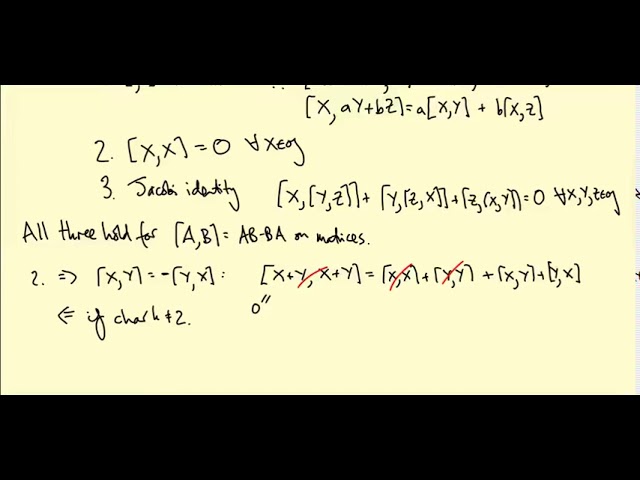 [X, aY+bZ]=a[X,Y] + b[X,Z]
2. [X,X] = 0 ∀X∈𝔤
3. Jacobi identity [X,[Y,Z]]+[Y,[Z,X]]+[Z,[X,Y]]=0 ∀X,Y,Z∈𝔤
All three hold for [A,B] = AB-BA on matrices.
2. ⇒ [X,Y]=-[Y,X]: [X+Y, X+Y] = [X,X]+[Y,Y] + [X,Y]+[Y,X]
⇐ if char k≠2. 0"